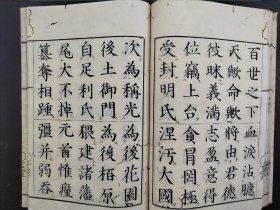 百世之下血淚沾臆
天歟命歟將由君德
彼昧義滿志盈意得
位竊上台貪冒罔極
受封明氏涅汚大國
次為稱光為後花園
後土御門為後柏原
自足利氏猥建諸藩
尾大不掉元首惟癉
篡奪相踵彊并弱吞